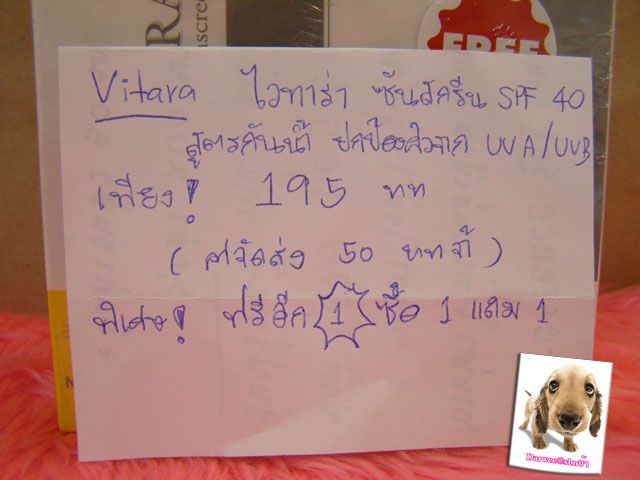 FREE
Vitara ไวทาร่า ซันสกรีน SPF 40
สูตรกันน้ำ ปกป้องผิวจาก UVA/UVB
เพียง! 195 บาท
( ค่าจัดส่ง 50 บาทจ้า )
พิเศษ! ฟรีอีก 1 ซื้อ 1 แถม 1